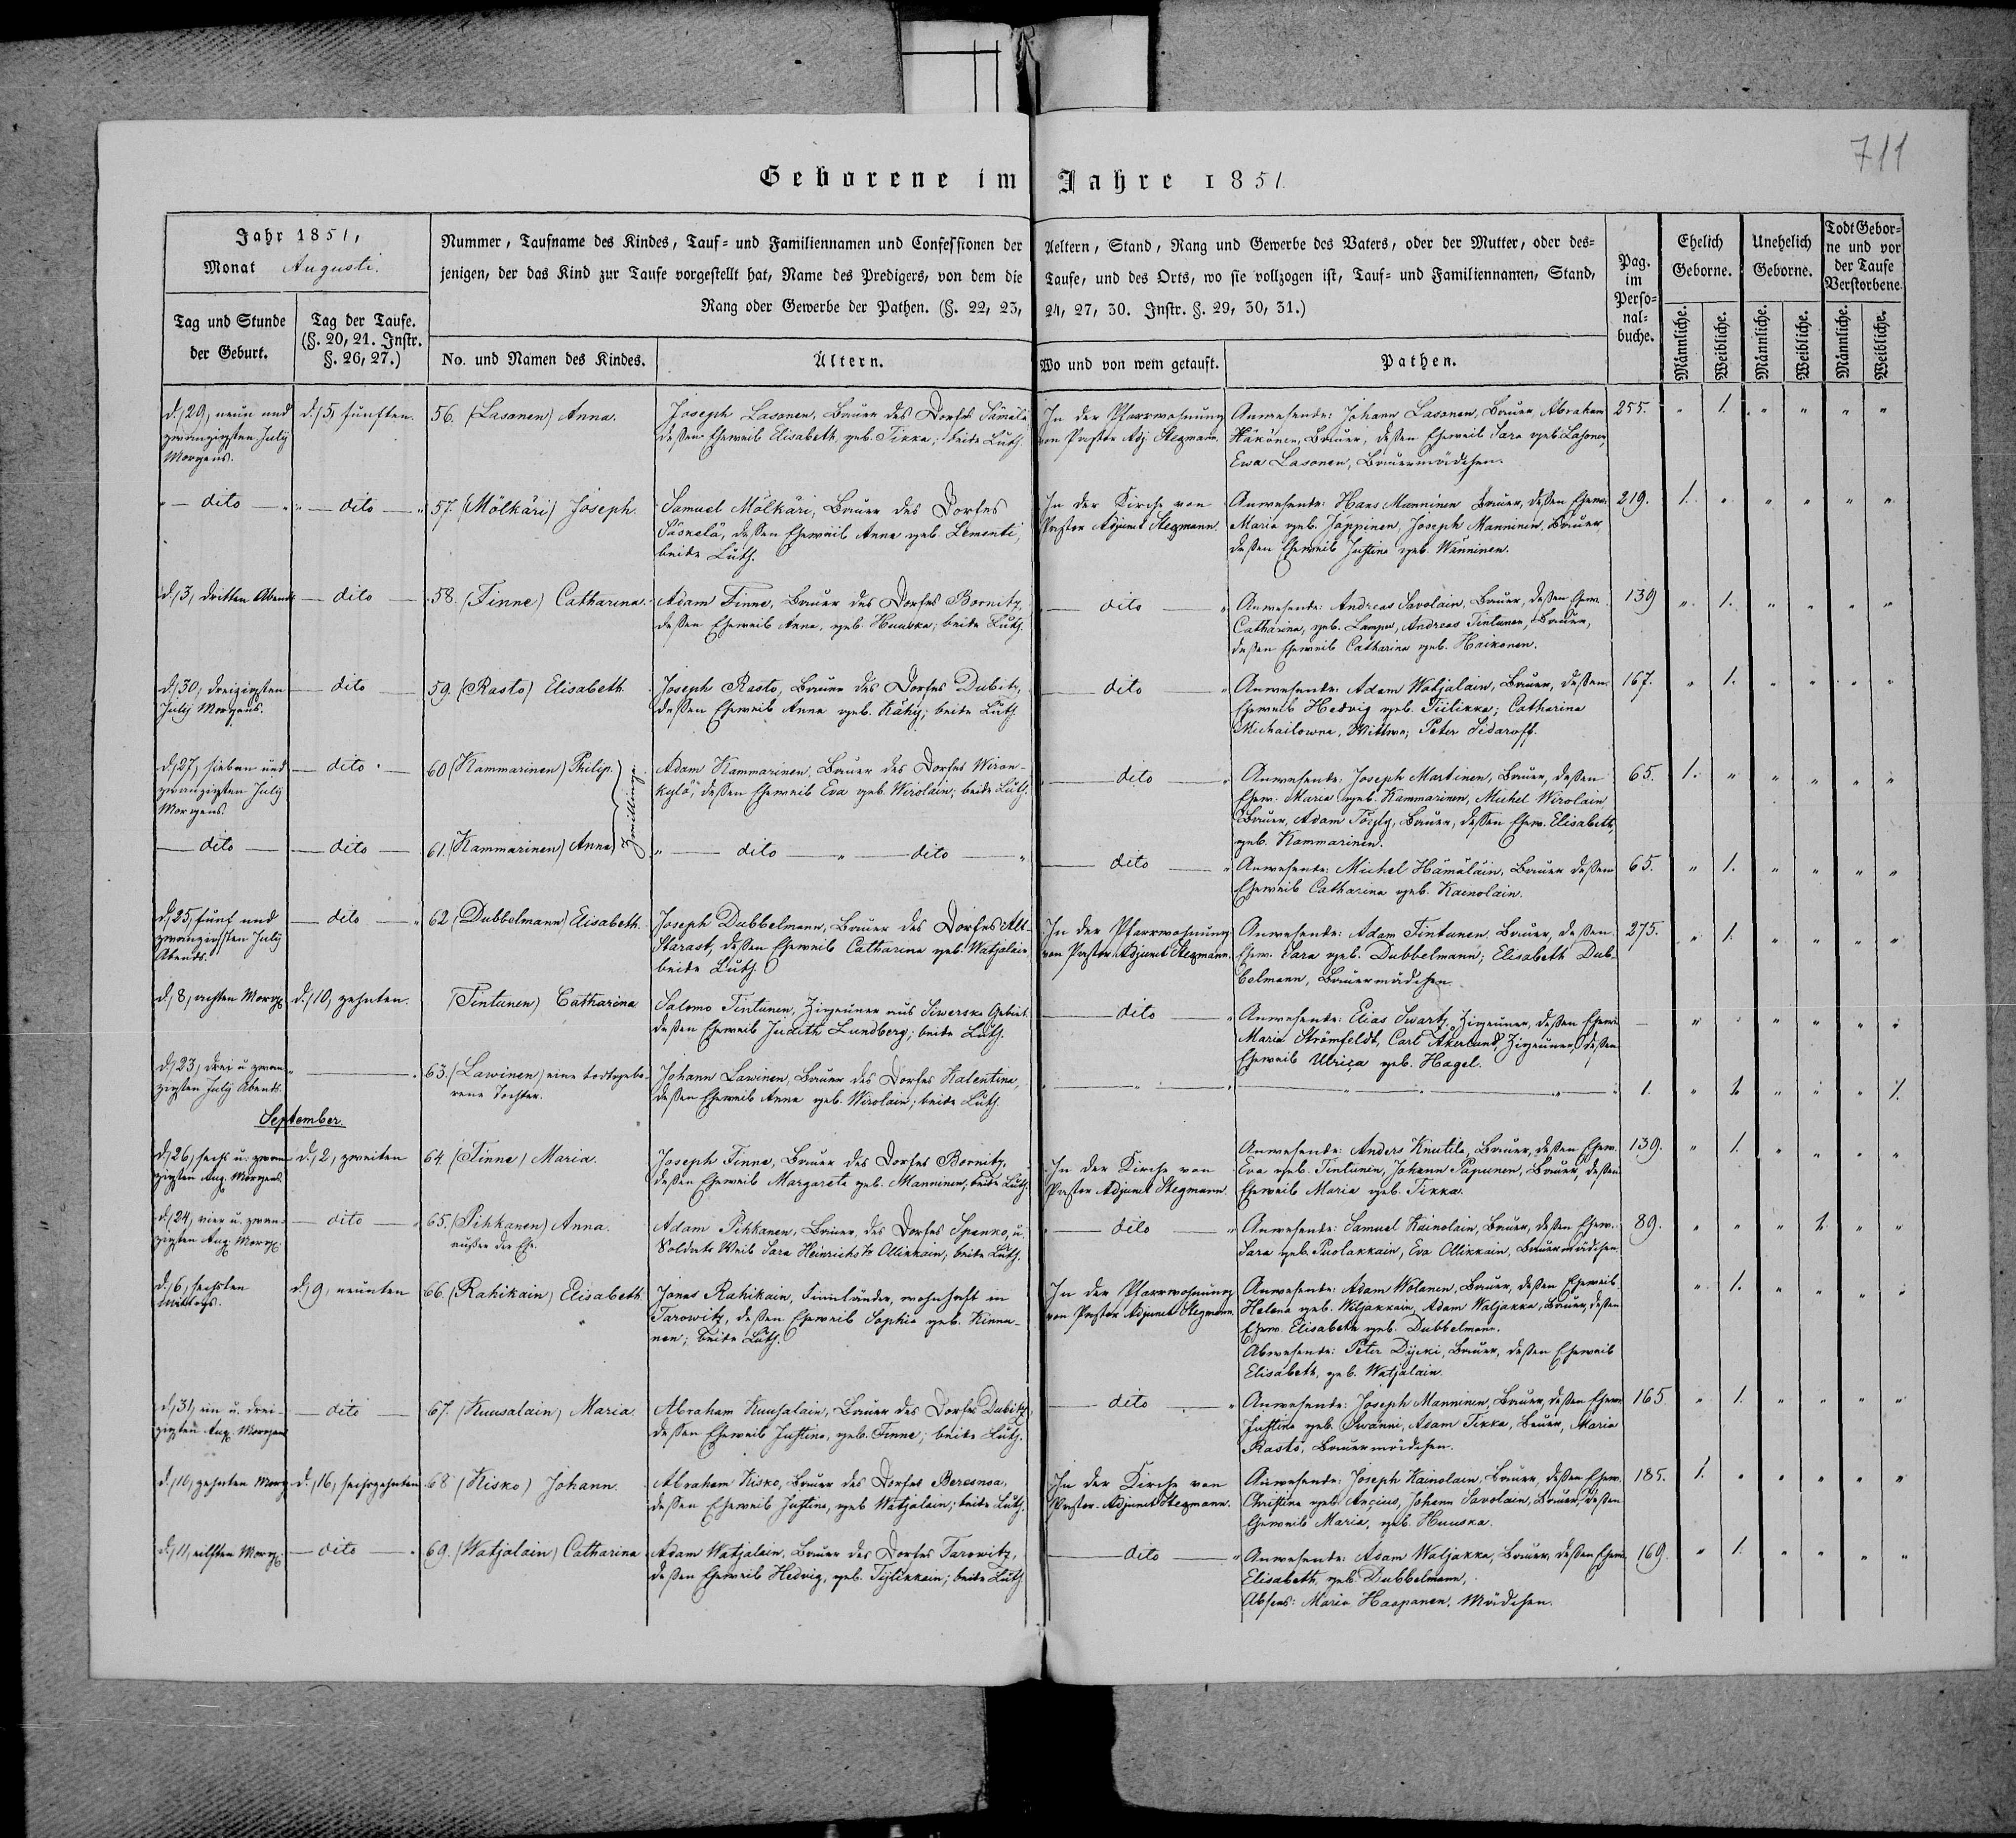 711
Geborene im Jahre 1851.
Jahr 1851,
Monat Augusti.
Nummer, Taufname des Kindes, Tauf- und Familiennamen und Confessionen der Aeltern, Stand, Rang und Gewerbe des Vaters, oder der Mutter, oder des-
jenigen, der das Kind zur Taufe vorgestellt hat, Name des Predigers, von dem die Taufe, und des Orts, wo sie vollzogen ist, Tauf- und Familiennamen, Stand,
Rang oder Gewerbe der Pathen. (§. 22, 23, 24, 27, 30. Instr. §. 29, 30, 31.)
Pag.
im
Perso-
nal-
buche.
Ehelich
Geborne.
Unehelich
Geborne.
Todt Gebor-
ne und vor
der Taufe
Verstorbene
Tag und Stunde
der Geburt.
Tag der Taufe.
(§. 20, 21. Instr.
§. 26, 27.)
No. und Namen des Kindes.
Ältern.
Wo und von wem getauft.
Pathen.
Männliche.
Weibliche.
Männliche.
Weibliche.
Männliche.
Weibliche.
d. 29, neun und
zwanzigsten July
Morgens.
d. 5, fünften.
56. (Lasonen) Anna.
Joseph Lasonen, Bauer des Dorfes Sämälä
deßen Eheweib Elisabeth, geb. Tikka; beide Luth.
In der Pfarrwohnung
von Pastor Adj. Stegmann.
Anwesende: Johann Lasonen, Bauer, Abraham
Häkönen, Bauer, deßen Eheweib Sara geb. Lasonen,
Ewa Lasonen, Bauermädchen.
255. " 1. " " " "
" — dito — " " — dito — "
57. (Mölkäri) Joseph.
Samuel Mölkäri, Bauer des Dorfes
Säskelä, deßen Eheweib Anna geb. Lementi,
beide Luth.
In der Kirche von
Pastor Adjunct Stegmann.
Anwesende: Hans Manninen Bauer, deßen Ehew.
Maria geb. Jäppinen, Joseph Manninen, Bauer,
deßen Eheweib Justina geb. Wänninen.
219. 1. " " " " "
d. 3, dritten Abends — dito —
58. (Finne) Catharina.
Adam Finne, Bauer des Dorfes Bornitz,
deßen Eheweib Anna, geb. Huuska; beide Luth.
— dito — "
Anwesende: Andreas Savolain, Bauer, deßen Ehew.
Catharina, geb. Lampu, Andreas Tintunen, Bauer,
deßen Eheweib Catharina geb. Haikonen.
139 " 1. " " " "
d. 30, dreizigsten
July Morgens.
— dito —
59. (Rasto) Elisabeth.
Joseph Rasto, Bauer des Dorfes Dubitz,
deßen Eheweib Anna geb. Kähy; beide Luth.
— dito — "
Anwesende: Adam Watjalain, Bauer, deßen
Eheweib Hedvig geb. Tiilikka; Catharina
Michailowna, Wittwe; Peter Sidaroff.
167. " 1. " " " "
d. 27, sieben und
zwanzigsten July
Morgens.
— dito —
60 (Kammarinen) Philip.
Zwillinge
Adam Kammarinen, Bauer des Dorfes Wiron-
kylä, deßen Eheweib Eva geb. Wirolain; beide Luth.
— dito — "
Anwesende: Joseph Martinen, Bauer, deßen
Ehew. Maria geb. Kammarinen, Michel Wirolain
Bauer, Adam Bauer, deßen Ehew. Elisabeth,
geb. Kammarinen.
65. 1. " " " " "
— dito — — dito —
61. (Kammarinen) Anna
" — dito — " — dito — "
— dito — "
Anwesende: Michel Hämäläin, Bauer deßen
Eheweib Catharina geb. Kainolain.
65. " 1. " " " "
d. 25, fünf und
zwanzigsten July
Abends.
— dito — "
62 (Dubbelmann) Elisabeth.
Joseph Dubbelmann, Bauer des Dorfes Alt-
Starast, deßen Eheweib Catharina geb. Watjalain
beide Luth.
In der Pfarrwohnung
von Pastor Adjunct Stegmann.
Anwesende: Adam Tintunen, Bauer, deßen
Ehew. Sara geb. Dubbelmann; Elisabeth Dub-
belmann, Bauermädchen.
275. " 1. " " " "
d. 8, achten Morg. d. 10, zehnten.
(Tintunen) Catharina
Salomo Tintunen, Zigeuner aus Siwerska Gebiet
deßen Eheweib Judith Lundberg; beide Luth.
— dito — "
Anwesende: Elias Swartz, Zigeuner, deßen Ehew.
Maria Strömfeldt, Carl Åkerlund, Zigeuner, deßen
Eheweib Ulrica geb. Hagel.
— " " " " " "
d. 23, drei u zwan-
zigsten July Abends.
63. (Lawinen) eine todtgebo-
rene Tochter.
Johann Lawinen, Bauer des Dorfes Kalentina,
deßen Eheweib Anna geb. Wirolain; beide Luth.
1. " 1. " " " 1.
September.
d. 26, sechs u. zwan-
zigsten Aug. Morgens.
d. 2, zweiten
64. (Finne) Maria.
Joseph Finne, Bauer des Dorfes Bornitz,
deßen Eheweib Margareta geb. Manninen; beide Luth.
In der Kirche von
Pastor Adjunct Stegmann.
Anwesende: Anders Knutila, Bauer, deßen Ehew.
Eva geb. Tintunen, Johann Papunen, Bauer, deßen
Eheweib Maria geb. Tikka.
139. " 1. " " " "
d. 24, vier u. zwan-
zigsten Aug. Morg.
— dito —
65. (Pihkanen) Anna.
außer der Ehe.
Adam Pihkanen, Bauer, des Dorfes Spanko, u.
Soldats Weib Sara Heinrichs Tr Ollikkain, beide Luth.
— dito — "
Anwesende: Samuel Kainolain, Bauer, deßen Ehew.
Sara geb. Puolakkain, Eva Ollikkain, Bauermädchen.
89. " " " 1. " "
d. 6, sechsten
Mittags.
d. 9, neunten
66. (Rahikain) Elisabeth
Jonas Rahikain, Finnländer, wohnhaft in
Tarowitz, deßen Eheweib Sophia geb. Kinnu-
nen; beide Luth.
In der Pfarrwohnung
von Pastor Adjunct Stegmann.
Anwesende: Adam Wolanen, Bauer, deßen Eheweib
Helena geb. Wiljakkain, Adam Waljakka, Bauer, deßen
Ehew. Elisabeth geb. Dubbelmann.
Abwesende: Peter Bauer, deßen Eheweib
Elisabeth, geb. Watjalain.
" 1. " " " "
d. 31, ein u. drei-
zigsten Aug. Morgens
— dito —
67. (Kuusalain) Maria.
Abraham Kuusalain, Bauer des Dorfes Dubitz,
deßen Eheweib Justina, geb. Finne; beide Luth.
— dito — "
Anwesende: Joseph Manninen, Bauer, deßen Ehew.
Justina geb. Swänni, Adam Tikka, Bauer, Maria
Rasto, Bauermädchen.
165 " 1. " " " "
d. 10, zehnten Morg. d. 16, sechszehnten
68 (Kisko) Johann.
Abraham Kisko, Bauer des Dorfes Beresnoa,
deßen Eheweib Justina, geb. Watjalain; beide Luth.
In der Kirche von
Pastor Adjunct Stegmann.
Anwesende: Joseph Kainolain, Bauer, deßen Ehew.
Christina geb. Ancius, Johann Savolain, Bauer, deßen
Eheweib Maria, geb. Huuska.
185. 1. " " " " "
d. 11, eilften Morg. — dito —
69. (Watjalain) Catharina
Adam Watjalain, Bauer des Dorfes Tarowitz,
deßen Eheweib Hedvig, geb. Tijlikkain; beide Luth.
— dito — "
Anwesende: Adam Waljakka, Bauer, deßen Ehew.
Elisabeth, geb. Dubbelmann,
Absens: Maria Haapanen, Mädchen.
169. " 1. " " " "